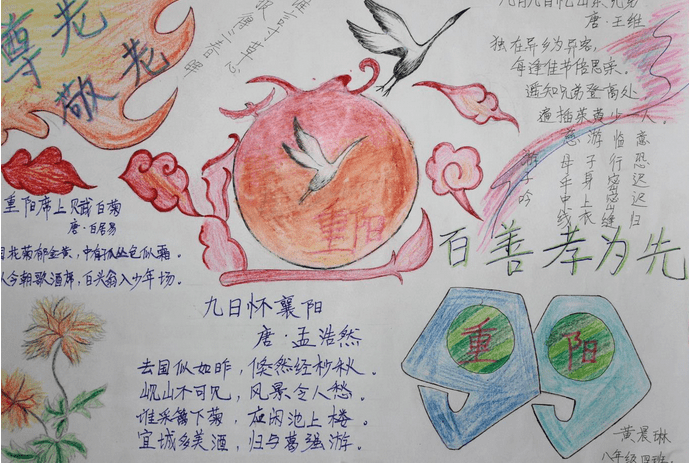 尊老
敬老
谁言寸草心
报得三春晖
九月九日忆山东兄弟
唐·王维
独在异乡为异客,
每逢佳节倍思亲。
遥知兄弟登高处
遍插茱萸少一人。
游子吟
慈母手中线
游子身上衣
临行密密缝
意恐迟迟归
重阳
百善孝为先
重阳席上赋白菊
唐·白居易
花菊郁金黄,中有孤丛色似霜。
似今朝歌酒席,白头翁入少年场。
九日怀襄阳
唐·孟浩然
去国似如昨,倏然经杪秋。
岘山不可见,风景令人愁。
谁采篱下菊,应闲池上楼。
宜城多美酒,归与葛强游。
重
阳
黄晨琳
八年级四班